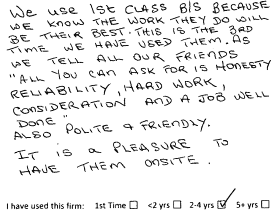 WE USE 1ST CLASS B/S BECAUSE
WE KNOW THE WORK THEY DO WILL
BE THEIR BEST. THIS IS THE 3RD
TIME WE HAVE USED THEM. AS
WE TELL ALL OUR FRIENDS
"ALL YOU CAN ASK FOR IS HONESTY
RELIABILITY, HARD WORK,
CONSIDERATION AND A JOB WELL
DONE"
ALSO POLITE & FRIENDLY.
IT IS A PLEASURE TO
HAVE THEM ONSITE.
I have used this firm: 1st Time ☐ <2 yrs ☐ 2-4 yrs ☑ 5+ yrs ☐